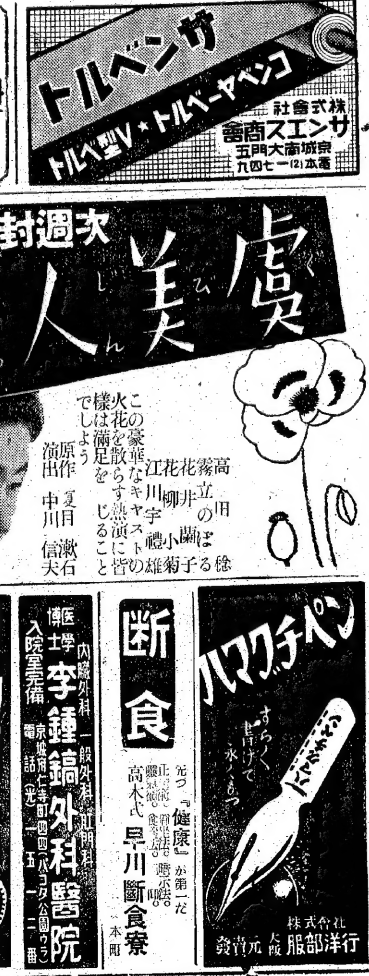 サンベルト
コンベヤーベルト★V型ベルト
株式會社
サンエス商會
京城南大門五
電本(2)一七四九
次週封
虞美人
ぐびじん
高田稔
霧立のぼる
花井蘭子
花柳小菊
江川宇禮雄
この豪華なキャストの
火花を散らす熱演に皆
樣は滿足を じること
でしよう
原作 夏目漱石
演出 中川信夫
ハマグチペン
すらく
書けて
永くもつ
株式會社
發賣元 大阪 服部洋行
断食
先づ『健康』が第一だ
高木式 早川斷食寮
本町
内臓外科 一般外科 肛門科
医学博士 李鍾鎬外科醫院
入院室完備
電話(光)一五一二番